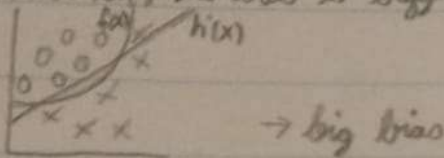 f(x) h'(x)
→ big bias